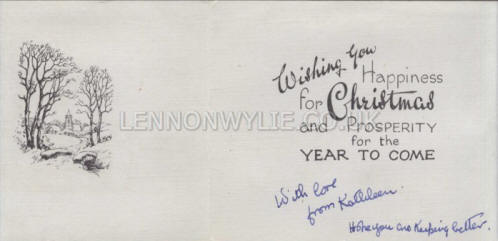 Wishing You
Happiness
for Christmas
and PROSPERITY
for the
YEAR TO COME
LENNONWYLIE.CO.UK
With love
from Kathleen.
Hope you are keeping better.